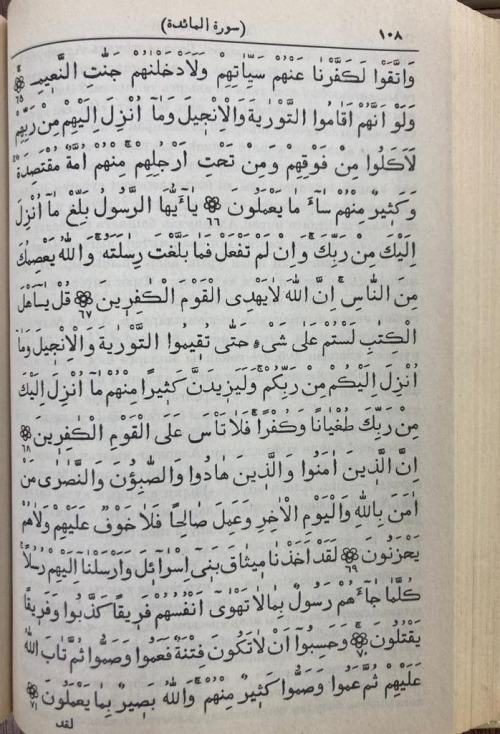 ١٠٨ (سورة المائدة)
وَاتَّقَوْا لَكَفَّرْنَا عَنْهُمْ سَيِّاٰتِهِمْ وَلَاَدْخَلْنٰهُمْ جَنّٰتِ النَّع۪يمِ ٦٥
وَلَوْ اَنَّهُمْ اَقَامُوا التَّوْرٰيةَ وَالْاِنْج۪يلَ وَمَٓا اُنْزِلَ اِلَيْهِمْ مِنْ رَبِّهِمْ
لَاَكَلُوا مِنْ فَوْقِهِمْ وَمِنْ تَحْتِ اَرْجُلِهِمْ مِنْهُمْ اُمَّةٌ مُقْتَصِدَةٌ
وَكَث۪يرٌ مِنْهُمْ سَٓاءَ مَا يَعْمَلُونَ ٦٦ يَٓا اَيُّهَا الرَّسُولُ بَلِّغْ مَٓا اُنْزِلَ
اِلَيْكَ مِنْ رَبِّكَ وَاِنْ لَمْ تَفْعَلْ فَمَا بَلَّغْتَ رِسَالَتَهُ وَاللّٰهُ يَعْصِمُكَ
مِنَ النَّاسِ اِنَّ اللّٰهَ لَا يَهْدِى الْقَوْمَ الْكٰفِر۪ينَ ٦٧ قُلْ يَٓا اَهْلَ
الْكِتٰبِ لَسْتُمْ عَلٰى شَىْءٍ حَتّٰى تُق۪يمُوا التَّوْرٰيةَ وَالْاِنْج۪يلَ وَمَٓا
اُنْزِلَ اِلَيْكُمْ مِنْ رَبِّكُمْ وَلَيَز۪يدَنَّ كَث۪يرًا مِنْهُمْ مَٓا اُنْزِلَ اِلَيْكَ
مِنْ رَبِّكَ طُغْيَانًا وَكُفْرًا فَلَا تَاْسَ عَلَى الْقَوْمِ الْكٰفِر۪ينَ ٦٨
اِنَّ الَّذ۪ينَ اٰمَنُوا وَالَّذ۪ينَ هَادُوا وَالصَّابِؤُ۫نَ وَالنَّصَارٰى مَنْ
اٰمَنَ بِاللّٰهِ وَالْيَوْمِ الْاٰخِرِ وَعَمِلَ صَالِحًا فَلَا خَوْفٌ عَلَيْهِمْ وَلَا هُمْ
يَحْزَنُونَ ٦٩ لَقَدْ اَخَذْنَا م۪يثَاقَ بَن۪ٓى اِسْرَٓائ۪لَ وَاَرْسَلْنَٓا اِلَيْهِمْ رُسُلًا
كُلَّمَا جَٓاءَهُمْ رَسُولٌ بِمَا لَا تَهْوٰٓى اَنْفُسُهُمْ فَر۪يقًا كَذَّبُوا وَفَر۪يقًا
يَقْتُلُونَ ٧٠ وَحَسِبُٓوا اَنْ لَا تَكُونَ فِتْنَةٌ فَعَمُوا وَصَمُّوا ثُمَّ تَابَ اللّٰهُ
عَلَيْهِمْ ثُمَّ عَمُوا وَصَمُّوا كَث۪يرٌ مِنْهُمْ وَاللّٰهُ بَص۪يرٌ بِمَا يَعْمَلُونَ ٧١
لقد